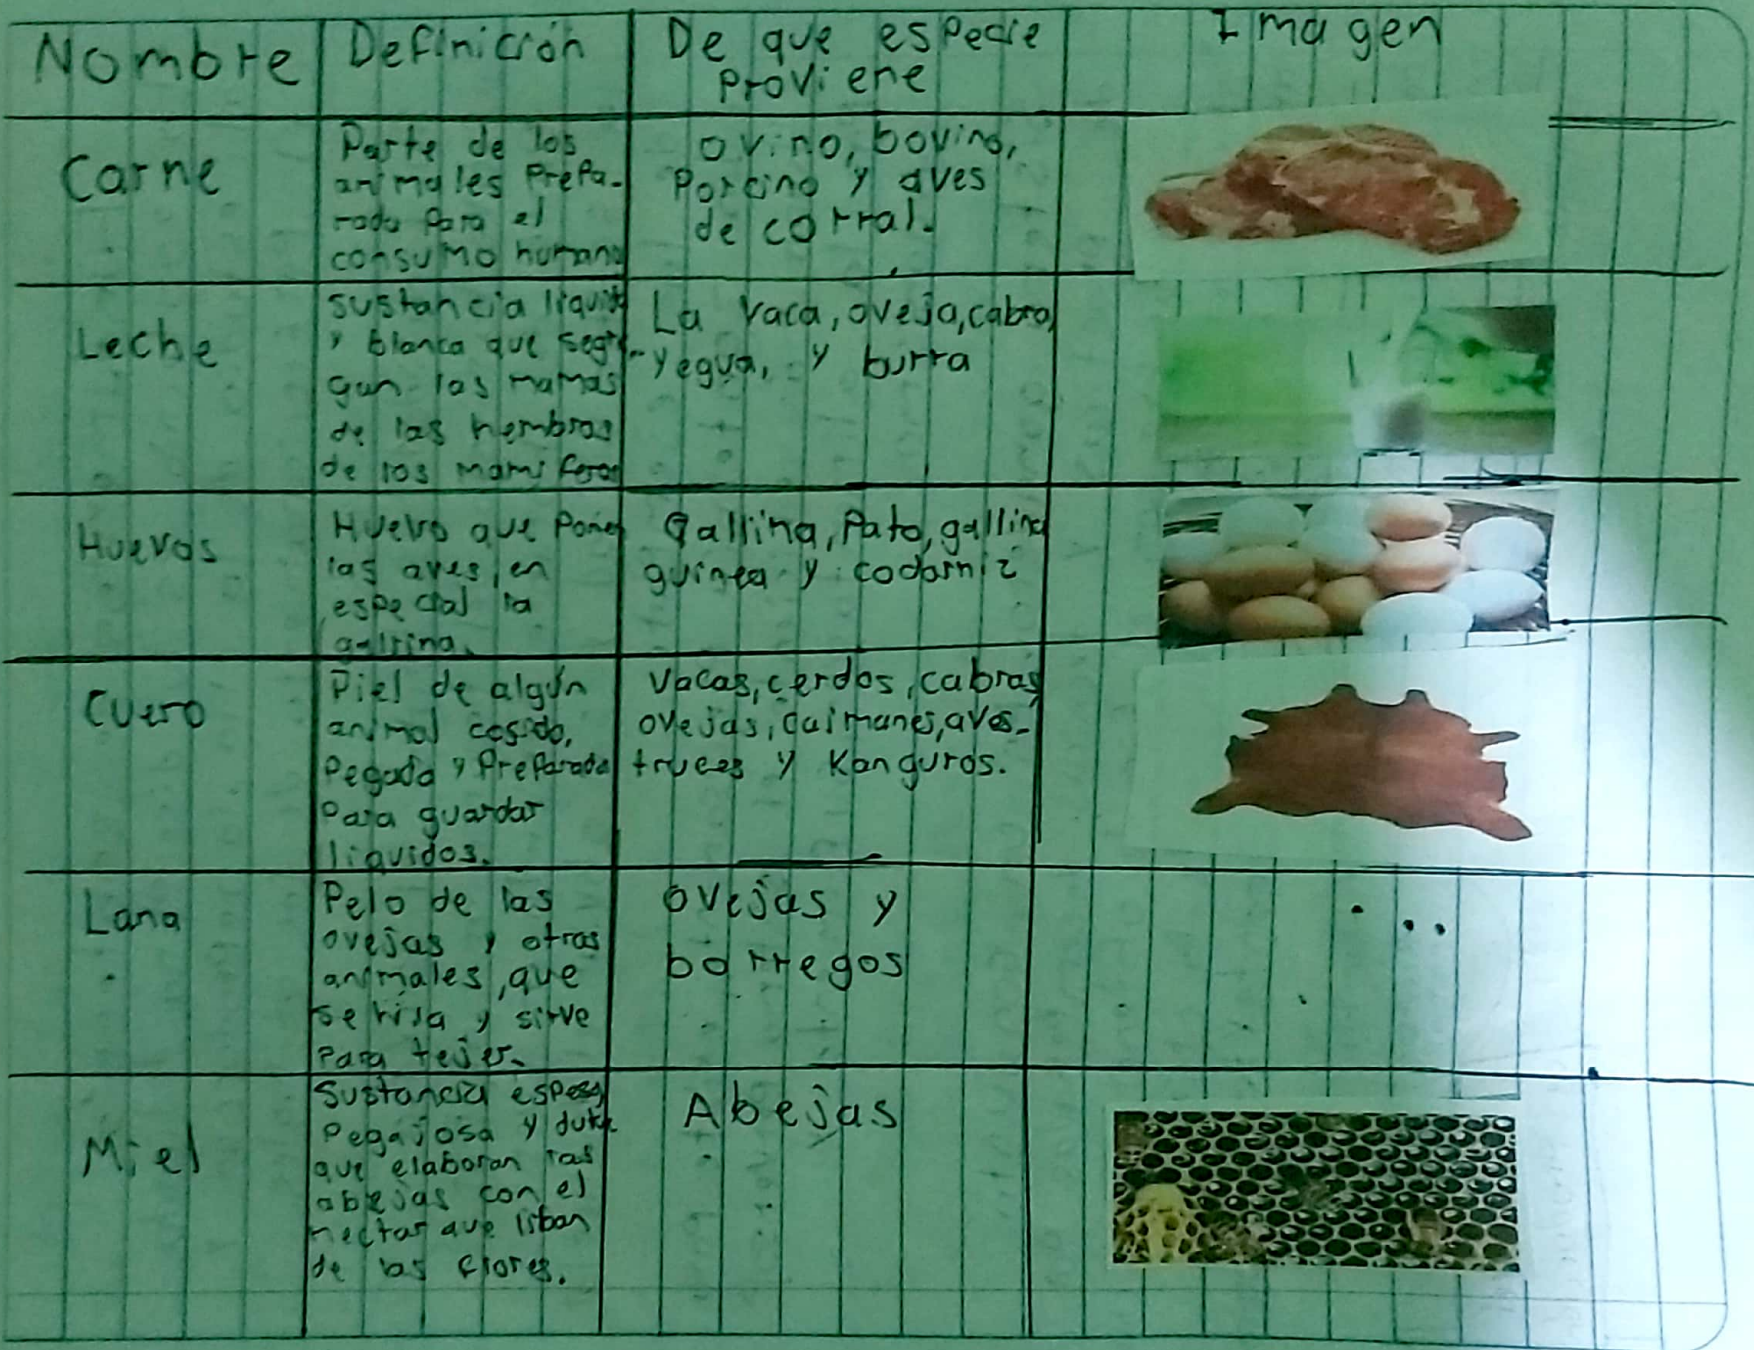 Nombre
Definición
De que especie
proviene
Imagen
Carne
Parte de los
animales prepa-
rada para el
consumo humano
ovino, bovino,
porcino y aves
de corral.
Leche
sustancia liquida
y blanca que segre-
gan las mamas
de las hembras
de los mamiferos
La vaca, oveja, cabra,
yegua, y burra
Huevos
Huevo que ponen
las aves, en
especial la
gallina.
Gallina, Pato, gallina
guinea y codorniz
Cuero
Piel de algún
animal cosido,
pegada y preparada
para guardar
liquidos.
Vacas, cerdos, cabras,
ovejas, caimanes, aves-
truces y Kanguros.
Lana
Pelo de las
ovejas y otras
animales, que
se hila y sirve
para tejer.
ovejas y
borregos
Miel
Sustancia espesa,
pegajosa y dulce
que elaboran las
abejas con el
nectar que liban
de las flores.
Abejas